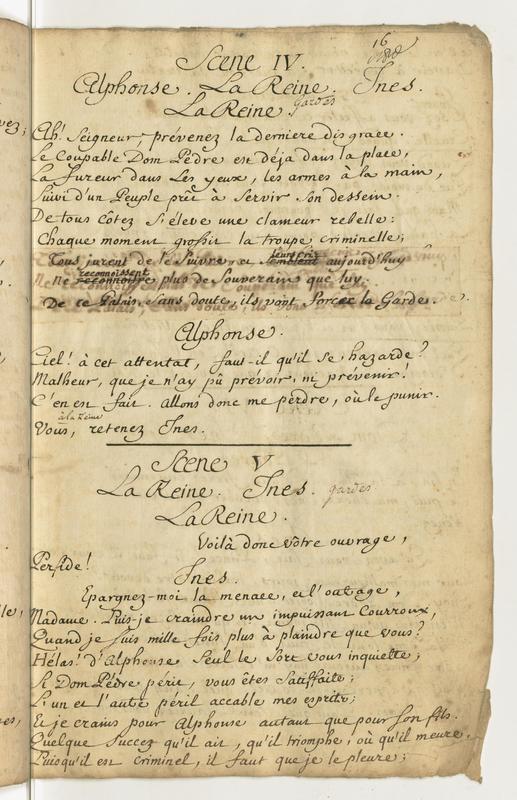 16
Scene IV.
Alphonse. La Reine. Ines.
gardes
La Reine.
Ah! Seigneur, prévenez la derniere disgrace.
Le Coupable Dom Pédre est déja dans la place,
La fureur dans Les yeux, les armes à la main,
Suivi d'un Peuple prêt à servir son dessein.
De tous côtez s'éleve une clameur rebelle:
Chaque moment grossit la troupe criminelle;
Tous jurent de le suivre, et leurs cris semblent aujourd'huy
reconnoissent
Ne reconnoistre plus de Souverains que luy.
De ce Palais, sans doute, ils vont forcer la Garde.
Alphonse.
Ciel! à cet attentat, faut-il qu'il se hazarde?
Malheur, que je n'ay pû prévoir, ni prévenir!
C'en est fait. allons donc me perdre, où le punir.
à la Reine
Vous, retenez Ines.
Scene V
La Reine. Ines. gardes
La Reine.
Voilà donc vôtre ouvrage,
Perfide!
Ines.
Epargnez-moi la menace, et l'outrage,
Madame. Puis-je craindre un impuissant Courroux,
Quand je suis mille fois plus à plaindre que vous?
Hélas! d'Alphonse seul le sort vous inquiette;
Si Dom Pédre périt, vous êtes satisfaite;
L'un et l'autre péril accable mes esprits;
Et je crains pour Alphonse autant que pour son fils.
Quelque succez qu'il ait, qu'il triomphe, où qu'il meure,
Puisqu'il est criminel, il faut que je le pleure;